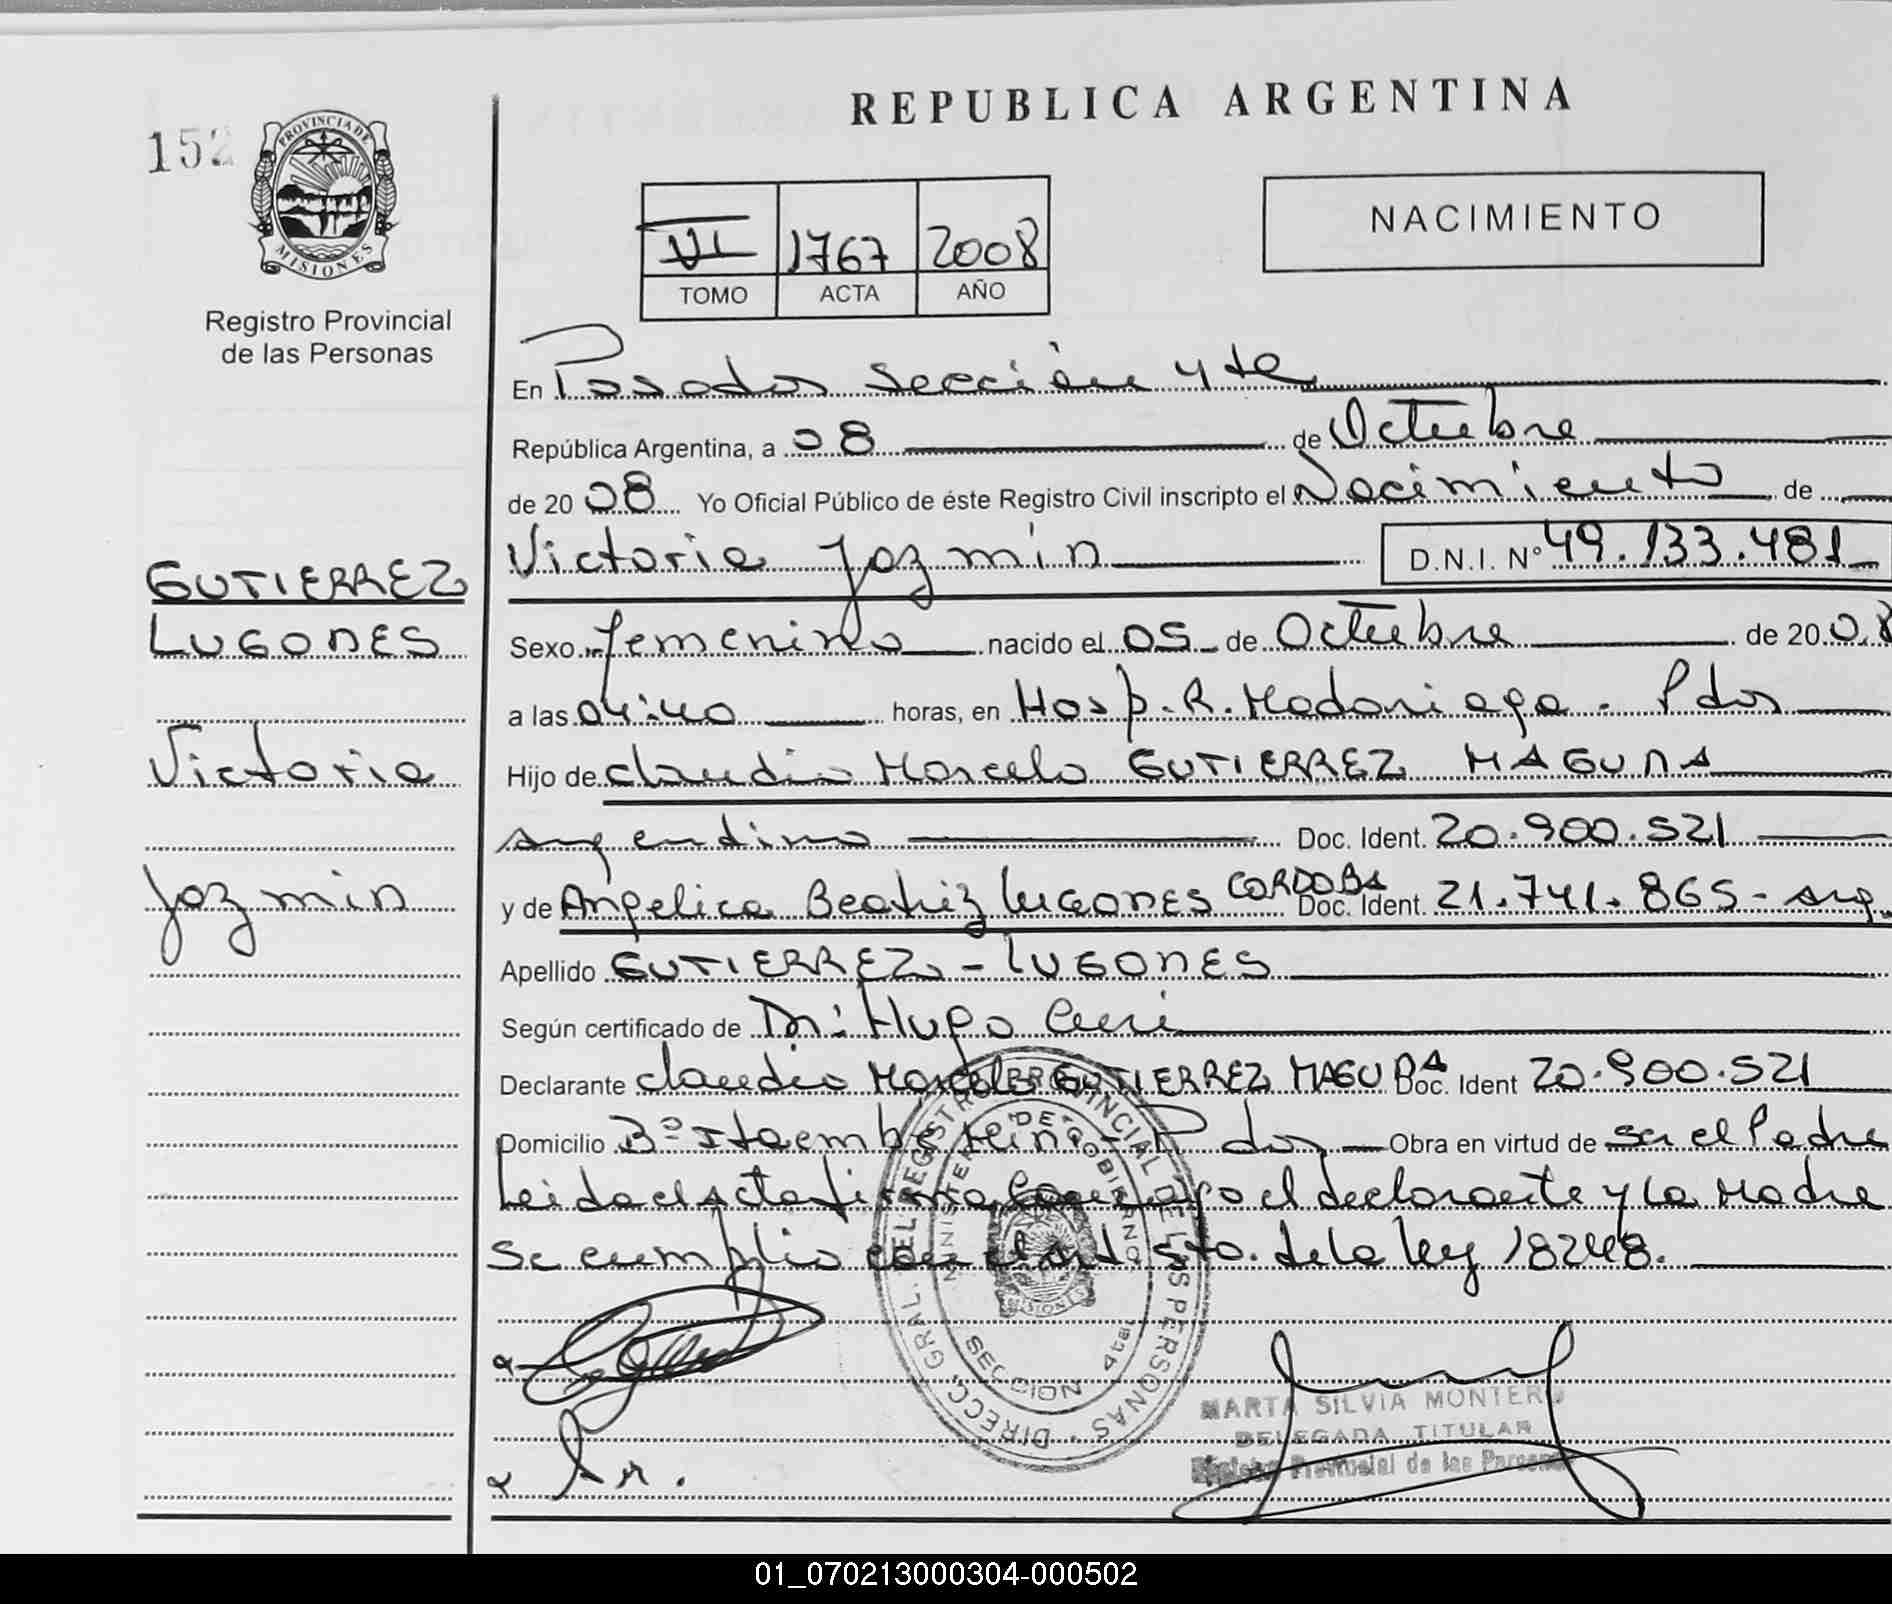 REPUBLICA ARGENTINA
152
PROVINCIA DE
MISIONES
Registro Provincial
de las Personas
NACIMIENTO
VI 1767 2008
TOMO ACTA AÑO
En Posadas Sección 4ta
República Argentina, a 08 de Octubre
de 2008 Yo Oficial Público de éste Registro Civil inscripto el Nacimiento de
Victoria Jazmin D.N.I. N° 49.133.481
GUTIERREZ
LUGONES
Victoria
Jazmin
Sexo femenino nacido el 05 de Octubre de 2008
a las 04:40 horas, en Hosp. R. Madariaga. Pdas
Hijo de Claudio Marcelo GUTIERREZ MAGUNA
argentino Doc. Ident. 20.900.521
y de Angelica Beatriz LUGONES CORDOBA Doc. Ident. 21.741.865- arg.
Apellido GUTIERREZ - LUGONES
Según certificado de Dr: Hugo
Declarante Claudio Marcelo GUTIERREZ MAGUNA Doc. Ident 20.900.521
Domicilio B° Itaembe Mini - Pdas Obra en virtud de ser el Padre
Leida el acta firma conmigo el declarante y la Madre
Se cumplio con el art. 5to. de la ley 18248.
DIRECC. GRAL. DEL REGISTRO PROVINCIAL DE LAS PERSONAS
MINISTERIO DE GOBIERNO
MISIONES
SECCION 4ta
MARTA SILVIA MONTERO
DELEGADA TITULAR
Registro Provincial de las Personas
01_070213000304-000502